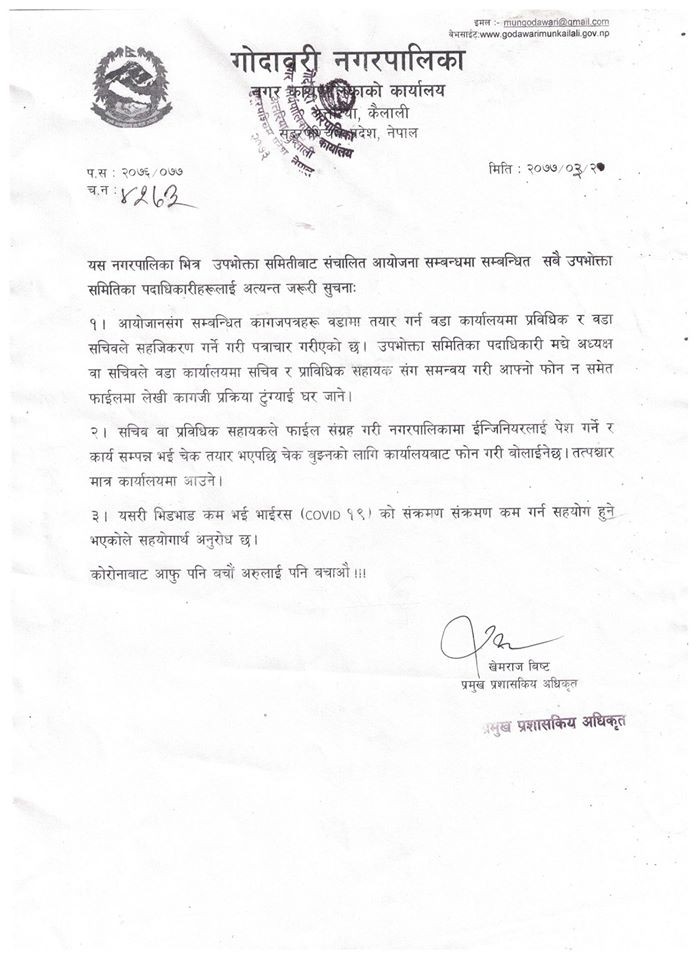 इमेल :- mungodawari@gmail.com
वेभसाईट:www.godawarimunkailali.gov.np
गोदावरी नगरपालिका
नगर कार्यपालिकाको कार्यालय
कैलाली
नेपाल
प.स : २०७६/०७७
च.न : ४२६३
मिति : २०७७/०३/२
यस नगरपालिका भित्र उपभोक्ता समितीबाट संचालित आयोजना सम्बन्धमा सम्बन्धित सबै उपभोक्ता
समितिका पदाधिकारीहरूलाई अत्यन्त जरूरी सुचनाः
१। आयोजानसंग सम्बन्धित कागजपत्रहरू वडामा तयार गर्न वडा कार्यालयमा प्रविधिक र वडा
सचिवले सहजिकरण गर्ने गरी पत्राचार गरीएको छ। उपभोक्ता समितिका पदाधिकारी मध्ये अध्यक्ष
वा सचिवले वडा कार्यालयमा सचिव र प्राविधिक सहायक संग समन्वय गरी आफ्नो फोन न समेत
फाईलमा लेखी कागजी प्रक्रिया टुंग्याई घर जाने।
२। सचिव वा प्रविधिक सहायकले फाईल संग्रह गरी नगरपालिकामा ईन्जिनियरलाई पेश गर्ने र
कार्य सम्पन्न भई चेक तयार भएपछि चेक बुझ्नको लागि कार्यालयबाट फोन गरी बोलाईनेछ। तत्पश्चार
मात्र कार्यालयमा आउने।
३। यसरी भिडभाड कम भई भाईरस (COVID १९) को संक्रमण संक्रमण कम गर्न सहयोग हुने
भएकोले सहयोगार्थ अनुरोध छ।
कोरोनाबाट आफु पनि बचौं अरुलाई पनि बचाऔ !!!
खेमराज विष्ट
प्रमुख प्रशासकिय अधिकृत
प्रमुख प्रशासकिय अधिकृत